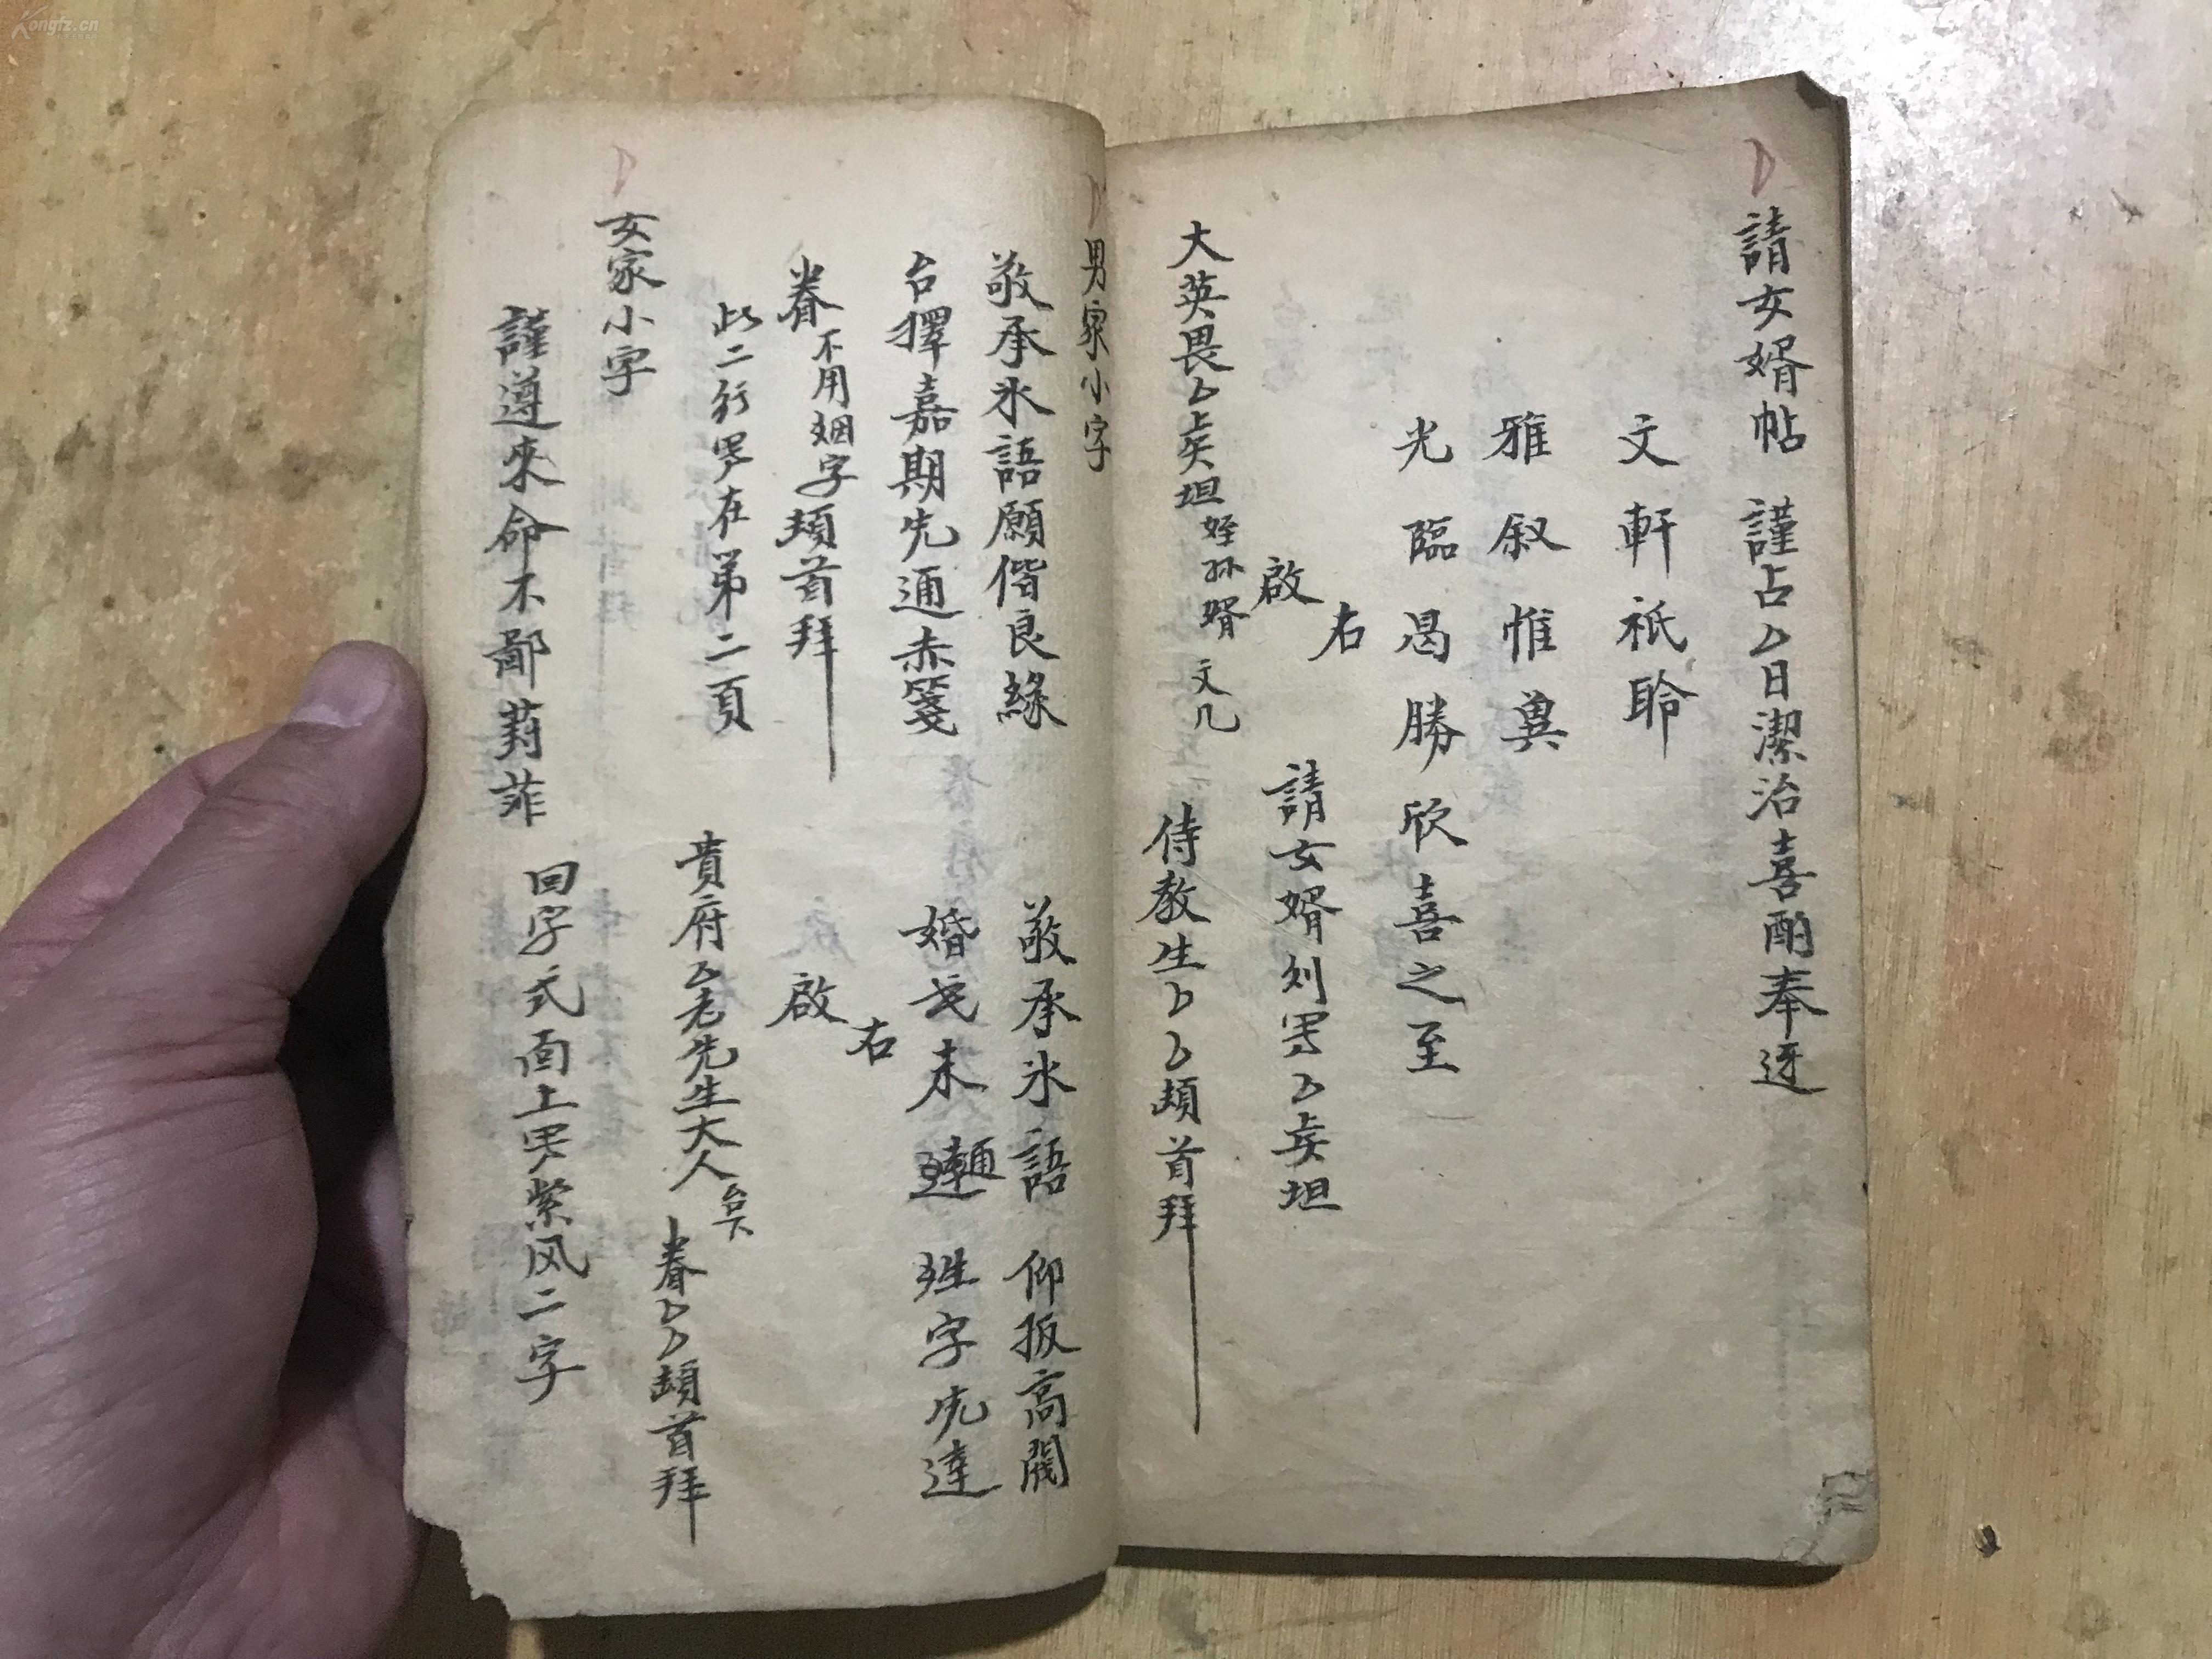 請女婿帖　謹占厶日潔治喜酌奉迓
文軒祇聆
雅叙惟冀
光臨曷勝欣喜之至
右
啟
請女婿刘
大英畏厶 坦 姪孙婿 文几
侍教生厶厶頓首拜
男家小字
敬承氷語願偕良緣
台擇嘉期先通赤箋
眷不用姻字頓首拜
此二行 在弟二頁
敬承氷語 仰扳高閥
婚 未 通 姓字先達
右
啟
貴府厶老先生大人 台下
眷厶厶頓首拜
女家小字
謹遵來命不鄙葑菲
回字式面上 紫风二字
Kongfz.cn